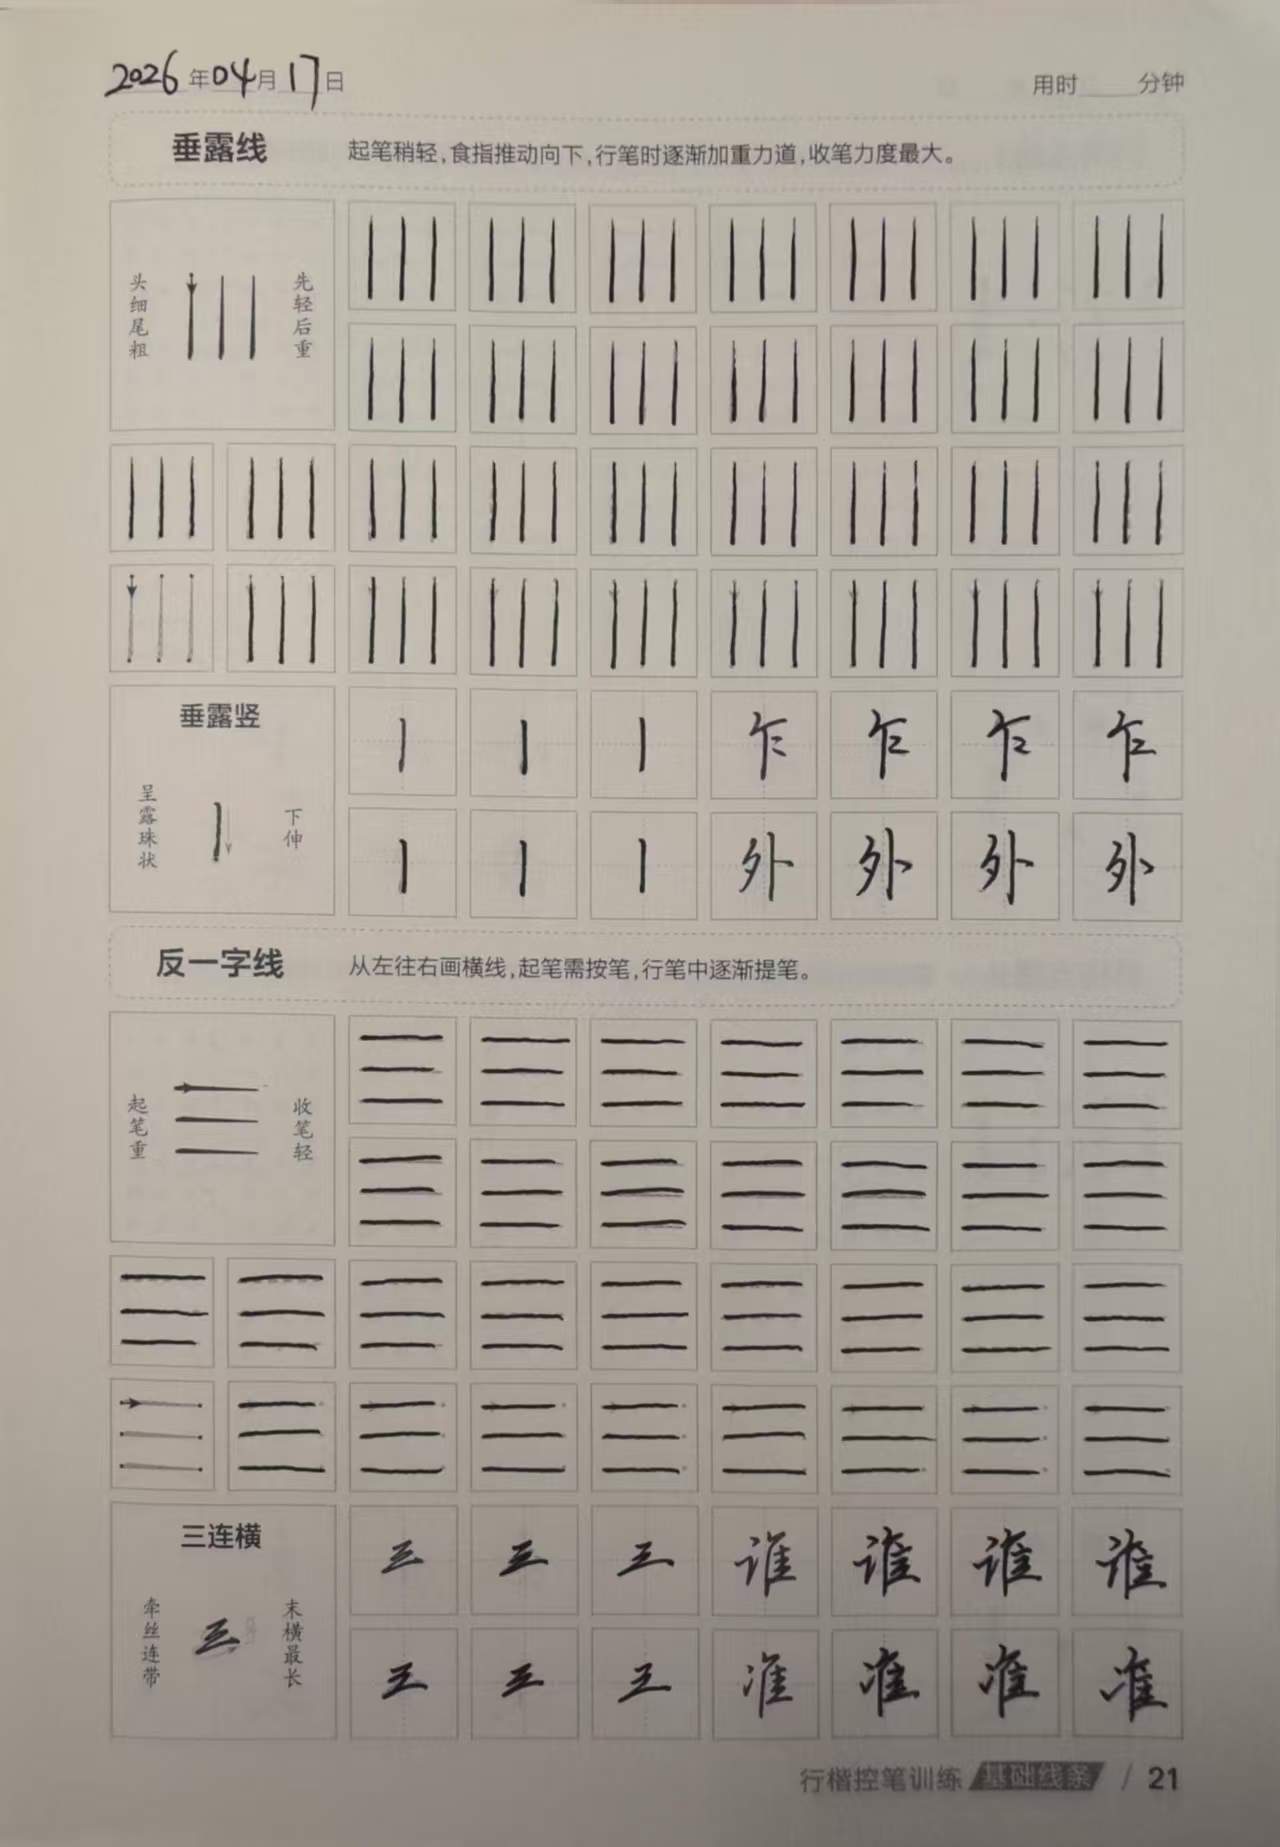 2026年04月17日 用时 分钟
垂露线 起笔稍轻,食指推动向下,行笔时逐渐加重力道,收笔力度最大。
头细尾粗 先轻后重
垂露竖 丨 丨 丨 乍 乍 乍 乍
呈露珠状 下伸 丨 丨 丨 外 外 外 外
反一字线 从左往右画横线,起笔需按笔,行笔中逐渐提笔。
起笔重 收笔轻
三连横 三 三 三 谁 谁 谁 谁
牵丝连带 末横最长 三 三 三 准 准 准 准
行楷控笔训练 基础线条 / 21